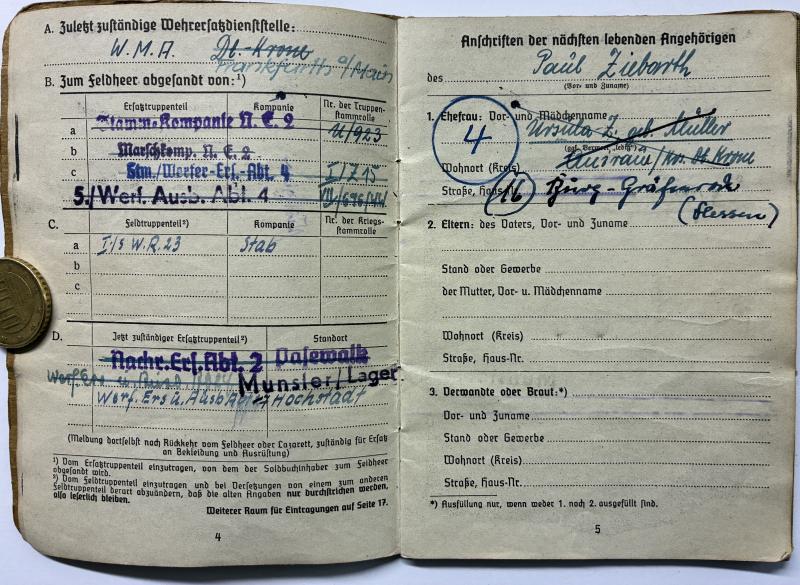 A. Zuletzt zuständige Wehrersatzdienststelle:
W.M.A. Dt.-Krone
Frankfurth a/Main
B. Zum Feldheer abgesandt von:¹)
Ersatztruppenteil
Kompanie
Nr. der Truppen-
stammrolle
a Stamm-Kompanie N. E. 2 U/923
b Marschkomp. N. E. 2
c Stm./Werfer-Ers.-Abt. 4 I/715
5./Werf. Ausb. Abt. 4
C. Feldtruppenteil²)
Kompanie
Nr. der Kriegs-
stammrolle
a I./S W.R. 23 Stab
b
c
D. Jetzt zuständiger Ersatztruppenteil²)
Standort
Nachr. Ers. Abt. 2 Pasewalk
Munster/Lager
Werf. Ers u. Ausb Höchstadt
(Meldung dortselbst nach Rückkehr vom Feldheer oder Lazarett, zuständig für Ersatz
an Bekleidung und Ausrüstung)
¹) Vom Ersatztruppenteil einzutragen, von dem der Soldbuchinhaber zum Feldheer
abgesandt wird.
²) Vom Feldtruppenteil einzutragen und bei Versetzungen von einem zum anderen
Feldtruppenteil derart abzuändern, daß die alten Angaben nur durchstrichen werden,
also leserlich bleiben.
Weiterer Raum für Eintragungen auf Seite 17.
4
Anschriften der nächsten lebenden Angehörigen
des Paul Ziebarth
(Vor- und Zuname)
1. Ehefrau: Vor- und Mädchenname
Ursula Z. geb. Müller
4
(ggf. Vermerk „ledig“)
Wohnort (Kreis) /Krs. Dt. Krone
Straße, Haus-Nr. (16) Burg-Gräfenrode
(Hessen)
2. Eltern: des Vaters, Vor- und Zuname
Stand oder Gewerbe
der Mutter, Vor- u. Mädchenname
Wohnort (Kreis)
Straße, Haus-Nr.
3. Verwandte oder Braut:*)
Vor- und Zuname
Stand oder Gewerbe
Wohnort (Kreis)
Straße, Haus-Nr.
*) Ausfüllung nur, wenn weder 1. noch 2. ausgefüllt sind.
5